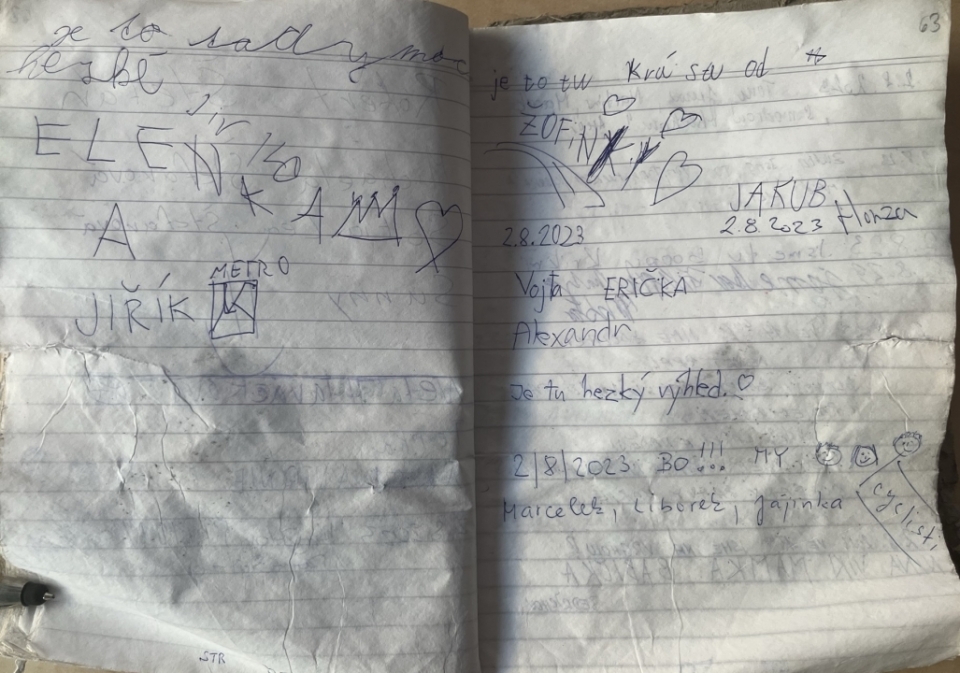 je to tady moc
hezké
Jirko
ELENKA
A
METRO
JIŘÍK
STR
63
je to tu krásu od
ŽOFINKY
JAKUB
2.8.2023 Honza
2.8.2023
Vojťa ERIČKA
Alexandr
Je tu hezký výhled.
2/8/2023 BO!!! MY
Marcelek, Liborek, Jájinka
cyclisti